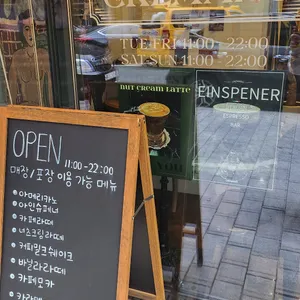 TUE-FRI 11:00 - 22:00
SAT-SUN 11:00 - 22:00
NUT CREAM LATTE
EINSPENER
BAR
YOU
OPEN
11:00-22:00
매장/포장 이용 가능 메뉴
아메리카노
아인슈페너
카페라떼
너츠크림라떼
커피밀크쉐이크
바닐라라떼
카페모카